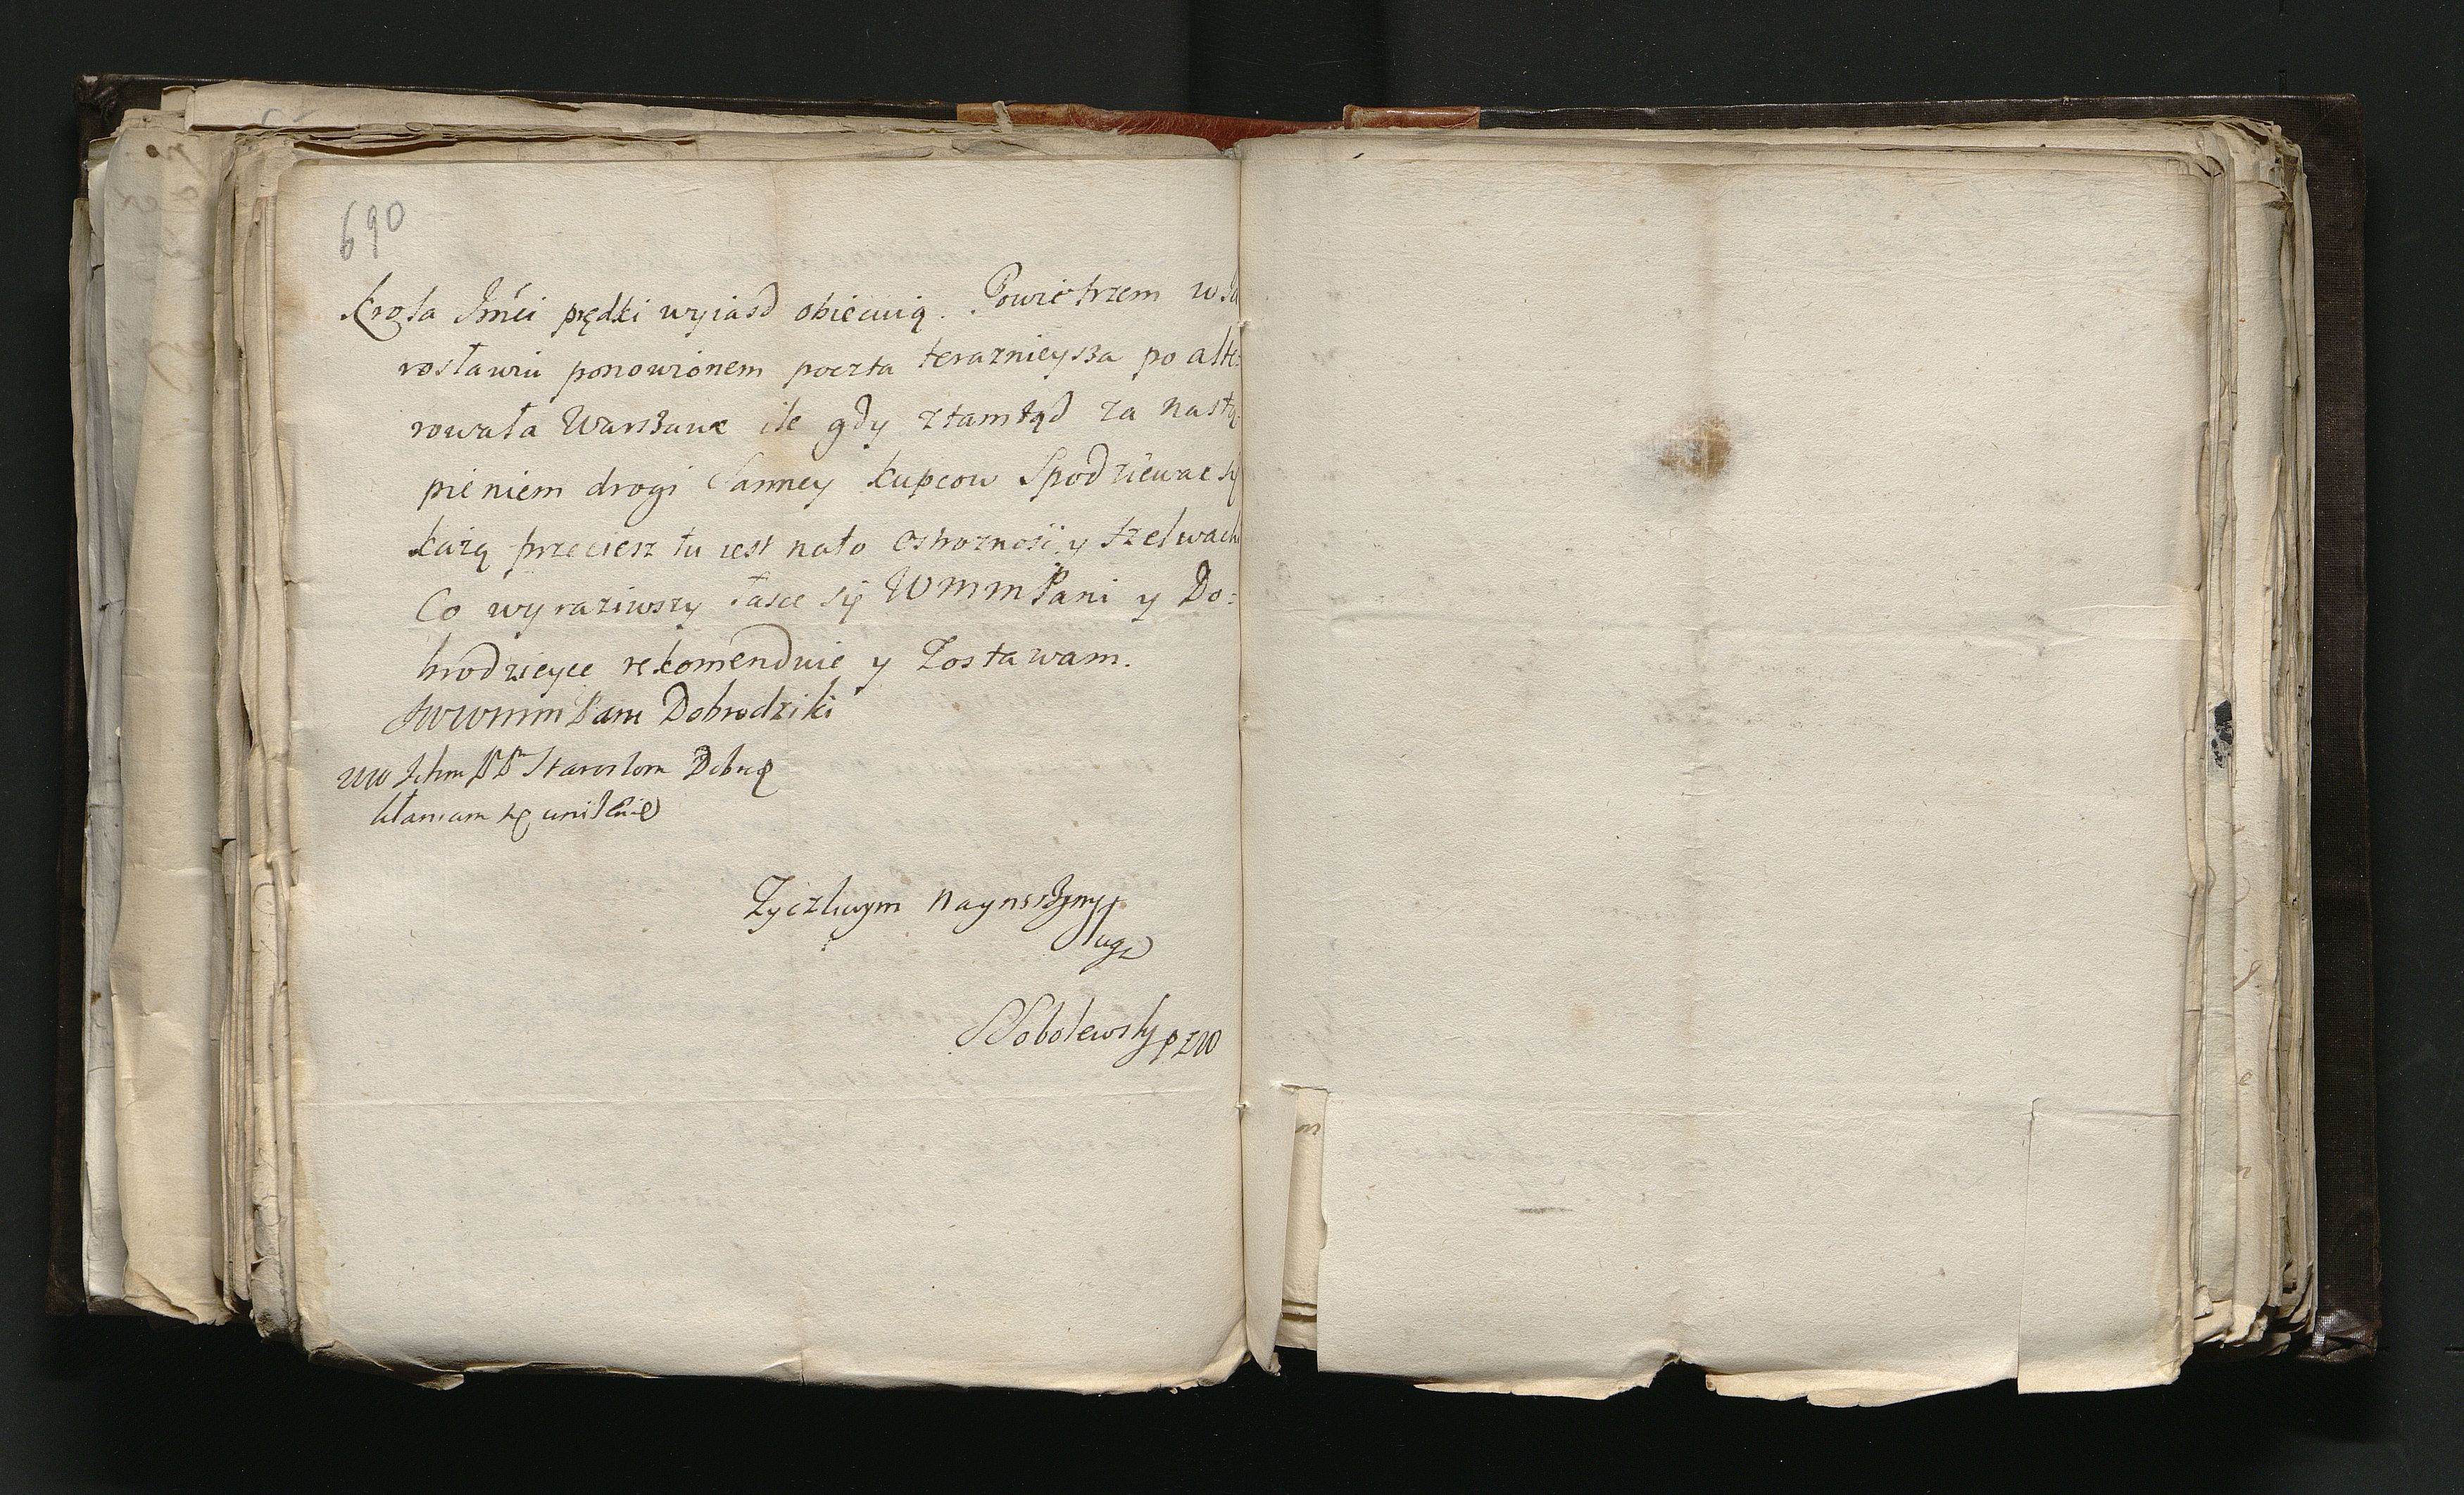 690
Krola Jmći prędki wyiasd obiecuią. Powietrzem w Ja
rosławiu ponowionem poczta teraznieysza po alte:
rowała Warszawe ile gdy ztamtąd za nastą
pieniem drogi Sanney kupcow Spodziewac się
każą przeciesz tu iest nato ostroznosć y szelwach
Co wyraziwszy łasce się WMM Pani y Do:
brodzieyce rekomenduie y Zostawam.
JWWMM Pani Dobrodziki
WW Ichm PP Starostom Dobrą
kłaniam się uniżenie
Zyczliwym Nayniższym
sługą
Sobolewsky PZW